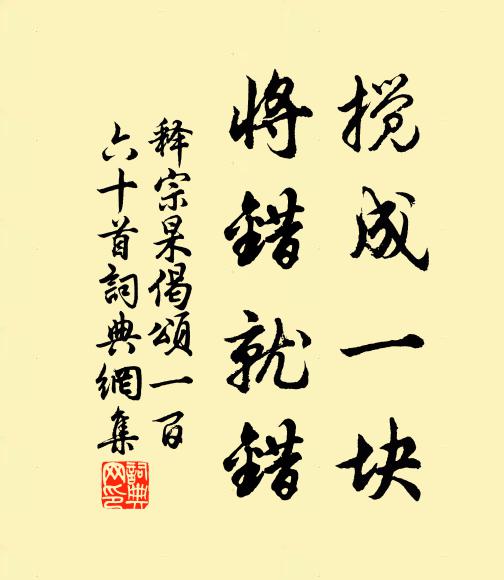 搅成一块
将错就错
释宗杲偈颂一百
六十首詞典網集
詞典
网印